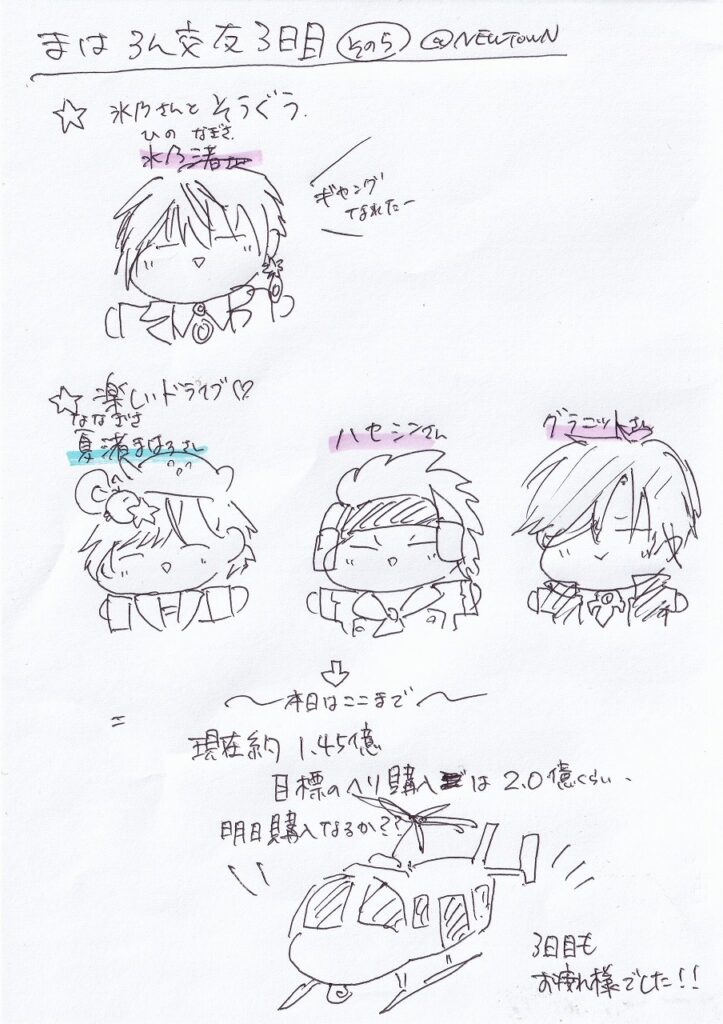 まはろん交友3日目 その5 @NEWTOWN
☆ 氷乃さんとそうぐう。
ひの なぎさ
氷乃渚
ギャング
なれたー
☆ 楽しいドライブ♡
ななぎさ
夏渚まはろさん
ハセシンさん
グラニットさん
〜本日はここまで〜
現在約 1.45億
目標のヘリ購入は 2.0億くらい、
明日購入なるか??
3日目も
お疲れ様でした!!